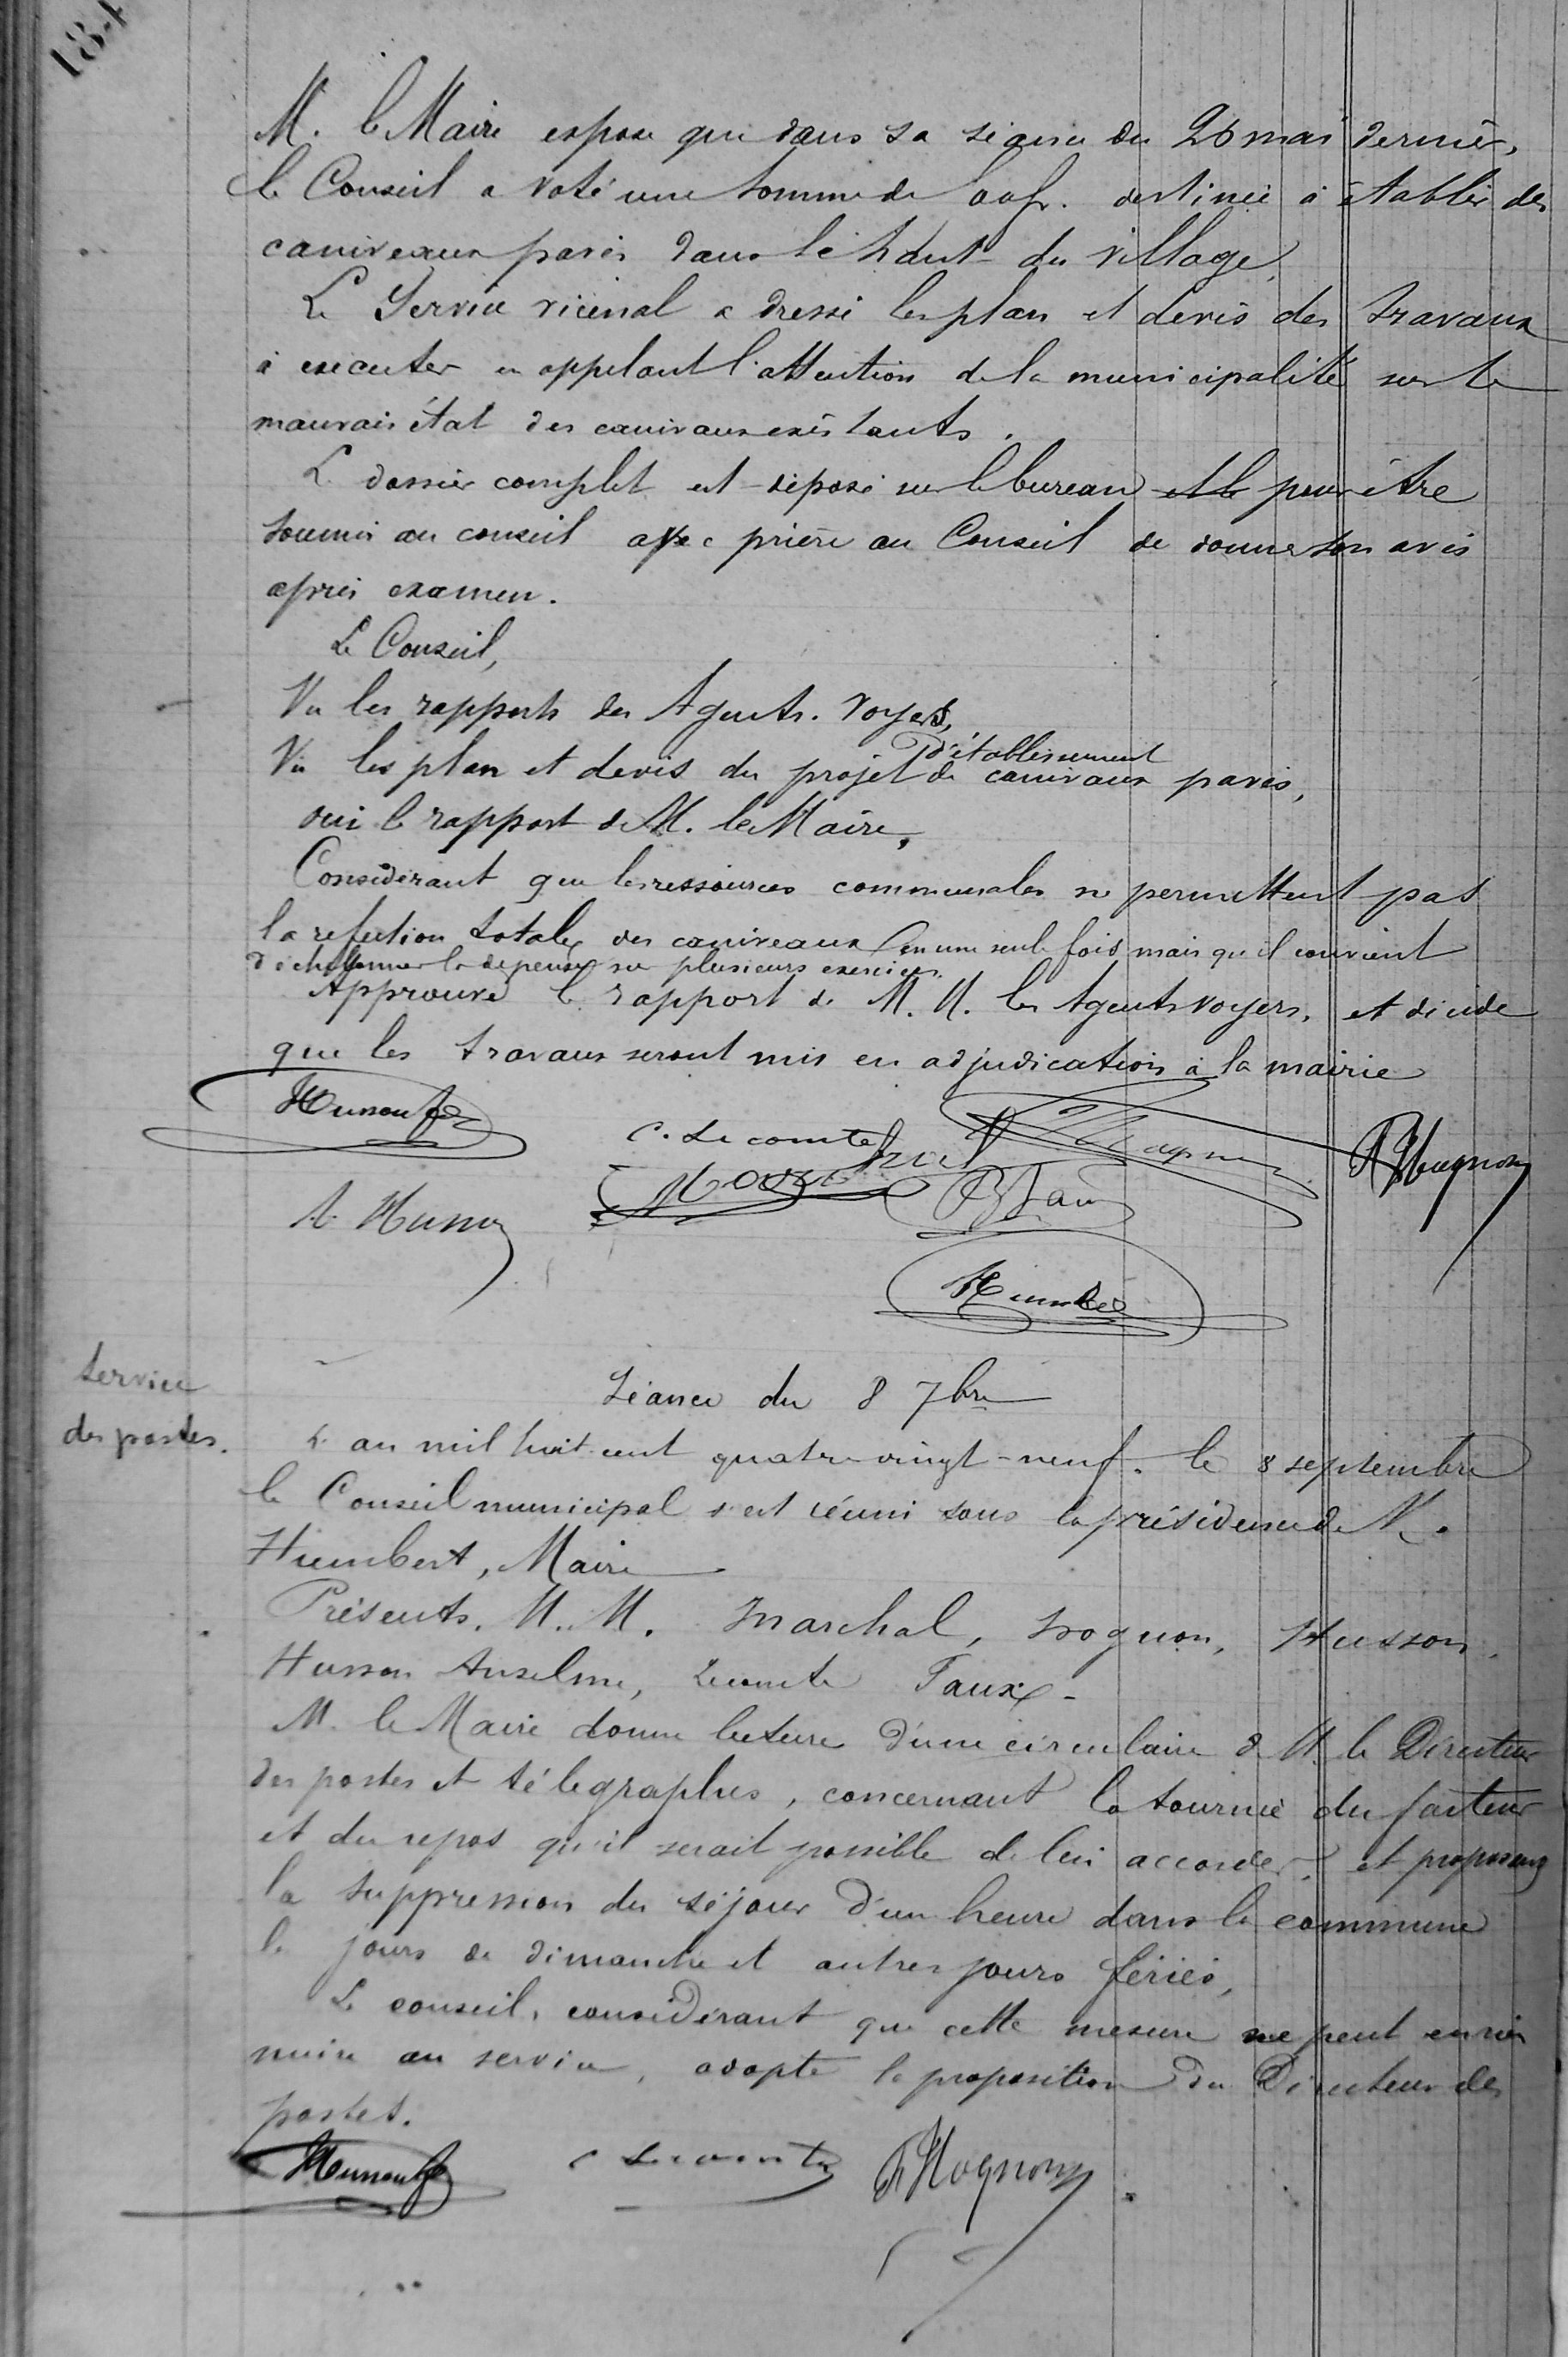 184
M. le Maire expose que dans sa séance du 26 mai dernier,
le Conseil a voté une somme de fr. destinée à établir des
caniveaux pavés dans le haut du village.
Le Service vicinal a dressé les plan et devis des travaux
à executer en appelant l'attention de la municipalité sur le
mauvais état des canivaux existants.
Le dossier complet est déposé sur le bureau et le pour être
soumis au conseil avec prière au Conseil de donner son avis
après examen.
Le Conseil,
Vu les rapports des Agents-Voyers,
d'établissement
Vu les plan et devis du projet de canivaux pavés,
oui le rapport de M. le Maire,
Considérant que les ressources communales ne permettent pas
la refection totale des caniveaux en une seule fois mais qu'il convient
d'échelonner la dépense sur plusieurs exercices.
Approuve le rapport de M. M. les Agents voyers, et décide
que les travaux seront mis en adjudication à la mairie
Husson
C. Lecomte
Marchal
Hognon
A. Husson
Service
des postes.
Séance du 8 7bre
L'an mil huit cent quatre-vingt-neuf. le 8 septembre
le Conseil municipal s'est réuni sous la présidence de M.
Humbert, Maire
Présents. M. M. Marchal, Hognon, Husson,
Husson Anselme, Lecomte Faux-
M. le Maire donne lecture d'une circulaire de M. le Directeur
des postes et télégraphes, concernant la tournée du facteur
et du repos qu'il serait possible de lui accorder, et proposant
la suppression du séjour d'une heure dans la commune
le jours de dimanche et autres jours fériés,
Le conseil, considérant que cette mesure ne peut en rien
nuire au service, adopte la proposition du Directeur des
postes.
Husson
C Lecomte
Hognon